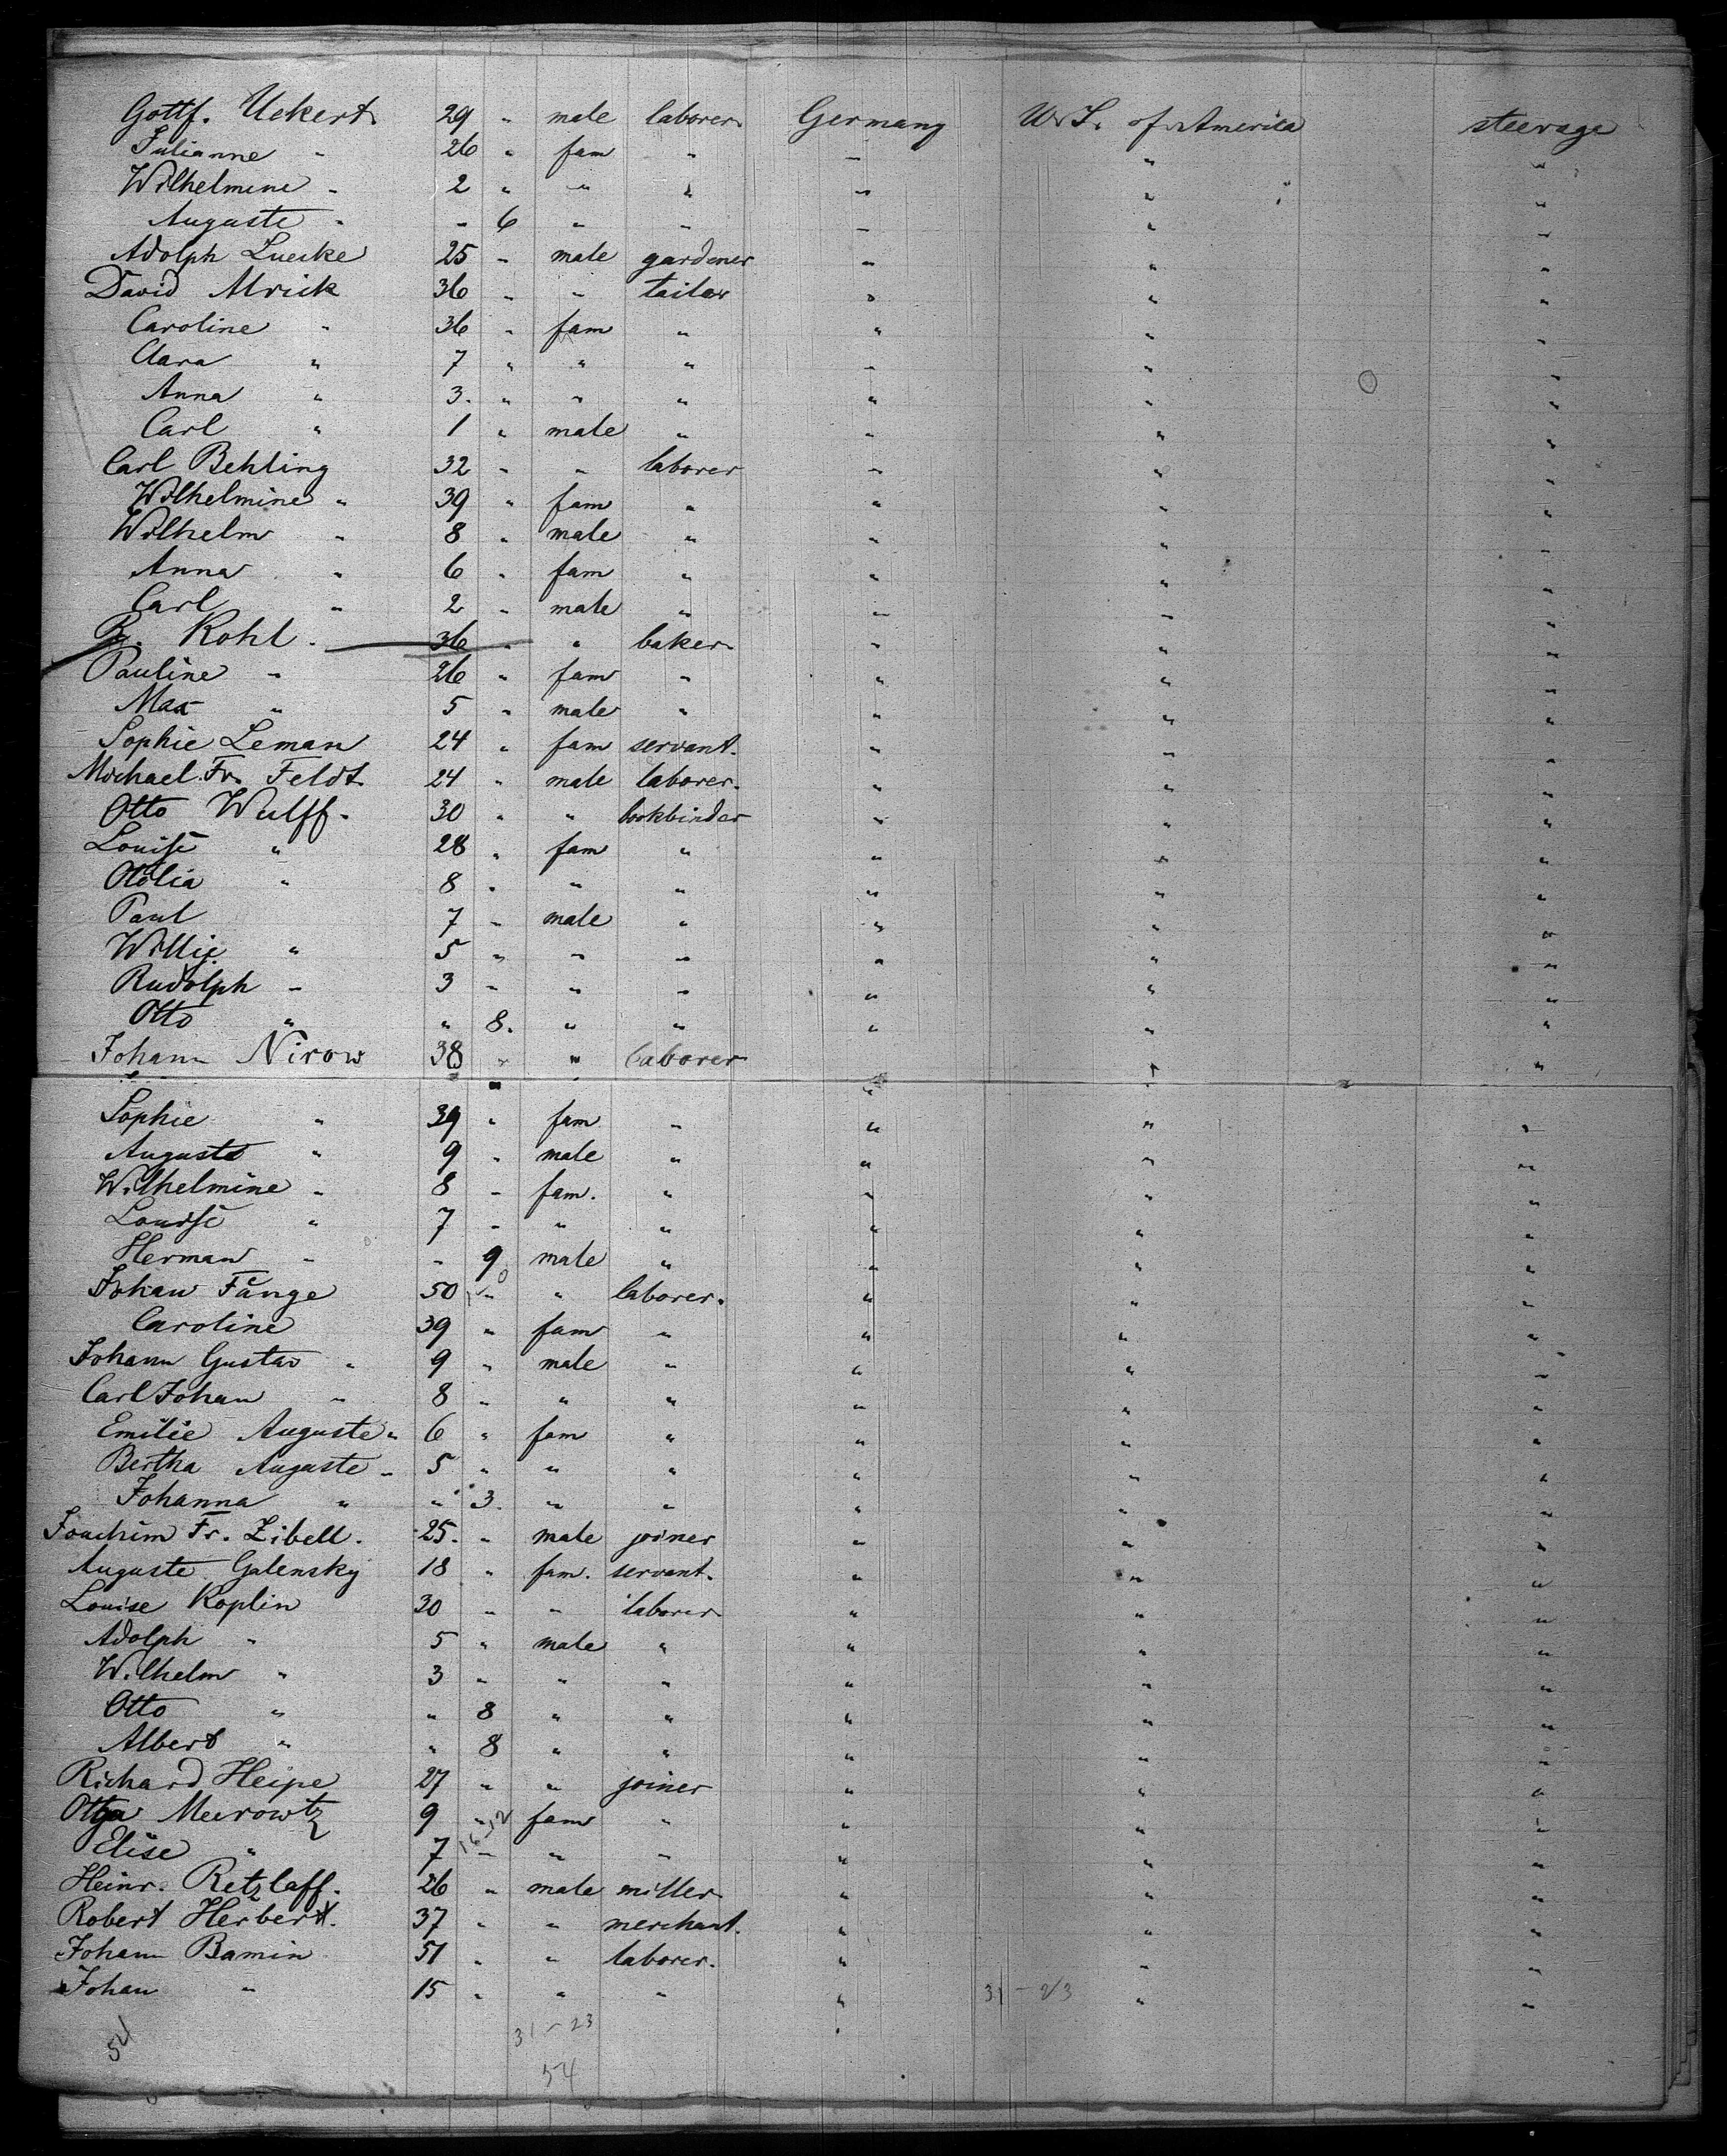 Gottf. Uekert 29 " male laborer Germany U. S. of America steerage
Julianne " 26 " fam " " " "
Wilhelmine " 2 " " " " " "
Auguste " " 6 " " " " "
Adolph Luecke 25 " male gardener " " "
David Mrick 36 " " tailor " " "
Caroline " 36 " fam " " " "
Clara " 7 " " " " " "
Anna " 3. " " " " " "
Carl " 1 " male " " " "
Carl Behling 32 " " laborer " " "
Wilhelmine " 39 " fam " " " "
Wilhelm " 8 " male " " " "
Anna " 6 " fam " " " "
Carl " 2 " male " " " "
Kohl. 36 " " baker " " "
Pauline " 26 " fam " " " "
Max " 5 " male " " " "
Sophie Leman 24 " fam servant. " " "
Michael Fr. Feldt 24 " male laborer. " " "
Otto Wulff. 30 " " bookbinder " " "
Louise " 28 " fam " " " "
Otolia " 8 " " " " " "
Paul 7 " male " " " "
Willie " 5 " " " " " "
Rudolph " 3 " " " " " "
Otto " " 8. " " " " "
Johann Nirow 38 " " laborer " "
Sophie " 39 " fam " " " "
Auguste " 9 " male " " " "
Wilhelmine " 8 " fam. " " " "
Louise " 7 " " " " " "
Herman " " 9 male " " " "
Johan Fänge 50 " " laborer. " " "
Caroline 39 " fam " " " "
Johann Gustav " 9 " male " " " "
Carl Johan " 8 " " " " " "
Emilie Auguste " 6 " fam " " " "
Bertha Auguste " 5 " " " " " "
Johanna " " 3. " " " "
Joachim Fr. Zibell. 25. " male joiner " " "
Auguste Galensky 18 " fam. servant. " " "
Louise Koplin 30 " " laborer " " "
Adolph " 5 " male " " " "
Wilhelm " 3 " " " " " "
Otto " " 8 " " " " "
Albert " " 8 " " " " "
Richard Heipe 27 " " joiner " " "
Meerowitz 9 " fam " " " "
Elise " 7 " " " " " "
Heinr. Retzlaff. 26 " male miller " " "
Robert Herbert. 37 " " merchant. " " "
Johann Bamin 51 " " laborer. " " "
Johan " 15 " " " " 31 - 23 " "
54 31 - 23
54